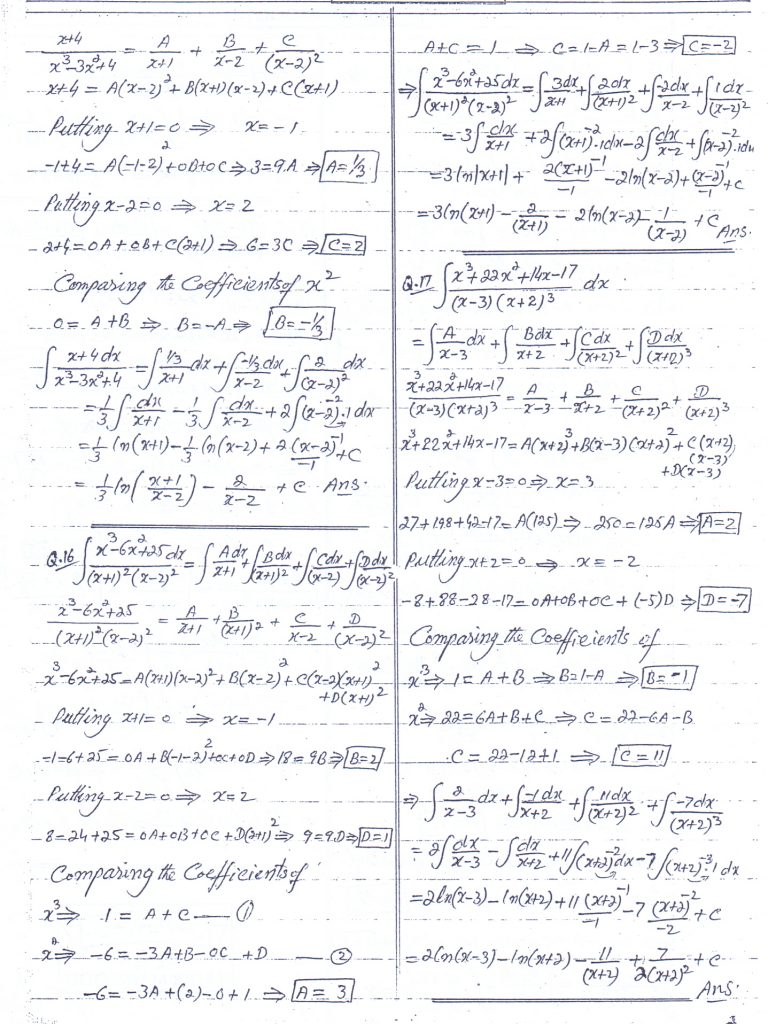 x+4/x³-3x²+4 = A/x+1 + B/x-2 + C/(x-2)²
x+4 = A(x-2)² + B(x+1)(x-2) + C(x+1)
Putting x+1=0 ⇒ x=-1
-1+4 = A(-1-2)² + 0B+0C ⇒ 3=9A ⇒ A=1/3
Putting x-2=0 ⇒ x=2
2+4=0A+0B+C(2+1) ⇒ 6=3C ⇒ C=2
Comparing the Coefficients of x²
0=A+B ⇒ B=-A ⇒ B=-1/3
∫ x+4 dx/x³-3x²+4 = ∫ 1/3/x+1 dx + ∫ -1/3 dx/x-2 + ∫ 2/(x-2)² dx
= 1/3 ∫ dx/x+1 - 1/3 ∫ dx/x-2 + 2∫(x-2)⁻².1 dx
= 1/3 ln(x+1) - 1/3 ln(x-2) + 2 (x-2)⁻¹/-1 + C
= 1/3 ln(x+1/x-2) - 2/x-2 + C Ans.
Q.16 ∫ x³-6x²+25 dx/(x+1)²(x-2)² = ∫ A dx/x+1 + ∫ B dx/(x+1)² + ∫ C dx/(x-2) + ∫ D dx/(x-2)²
x³-6x²+25/(x+1)²(x-2)² = A/x+1 + B/(x+1)² + C/x-2 + D/(x-2)²
x³-6x²+25 = A(x+1)(x-2)² + B(x-2)² + C(x-2)(x+1)²
+D(x+1)²
Putting x+1=0 ⇒ x=-1
-1=6+25=0A+B(-1-2)²+0C+0D ⇒ 18=9B ⇒ B=2
Putting x-2=0 ⇒ x=2
8=24+25=0A+0B+0C+D(2+1)² ⇒ 9=9D ⇒ D=1
Comparing the Coefficients of
x³ ⇒ 1 = A+C — ①
x² ⇒ -6 = -3A+B-0C +D — ②
-6 = -3A+(2)-0+1 ⇒ A = 3
A+C = 1 ⇒ C=1-A = 1-3 ⇒ C=-2
⇒ ∫ x³-6x²+25 dx/(x+1)²(x-2)² = ∫ 3dx/x+1 + ∫ 2dx/(x+1)² + ∫ -2dx/x-2 + ∫ 1 dx/(x-2)²
= 3∫ dx/x+1 + 2∫(x+1)⁻².1dx - 2∫ dx/x-2 + ∫(x-2)⁻².1dx
= 3 ln|x+1| + 2(x+1)⁻¹/-1 - 2ln(x-2) + (x-2)⁻¹/-1 + C
= 3ln(x+1) - 2/(x+1) - 2ln(x-2) - 1/(x-2) + C Ans.
Q.17 ∫ x³+22x²+14x-17/(x-3)(x+2)³ dx
= ∫ A/x-3 dx + ∫ Bdx/x+2 + ∫ Cdx/(x+2)² + ∫ Ddx/(x+2)³
x³+22x²+14x-17/(x-3)(x+2)³ = A/x-3 + B/x+2 + C/(x+2)² + D/(x+2)³
x³+22x²+14x-17 = A(x+2)³+B(x-3)(x+2)²+C(x+2)
(x-3)
+D(x-3)
Putting x-3=0 ⇒ x=3
27+198+42-17=A(125) ⇒ 250=125A ⇒ A=2
Putting x+2=0 ⇒ x=-2
-8+88-28-17=0A+0B+0C+(-5)D ⇒ D=-7
Comparing the Coefficients of
x³ ⇒ 1=A+B ⇒ B=1-A ⇒ B=-1
x² ⇒ 22=6A+B+C ⇒ C=22-6A-B
C=22-12+1 ⇒ C=11
⇒ ∫ 2/x-3 dx + ∫ -1dx/x+2 + ∫ 11dx/(x+2)² + ∫ -7dx/(x+2)³
= 2∫ dx/x-3 - ∫ dx/x+2 + 11∫(x+2)⁻²dx - 7∫(x+2)⁻³.1 dx
= 2ln(x-3) - ln(x+2) + 11 (x+2)⁻¹/-1 - 7 (x+2)⁻²/-2 + C
= 2ln(x-3) - ln(x+2) - 11/(x+2) + 7/2(x+2)² + C
Ans.
3